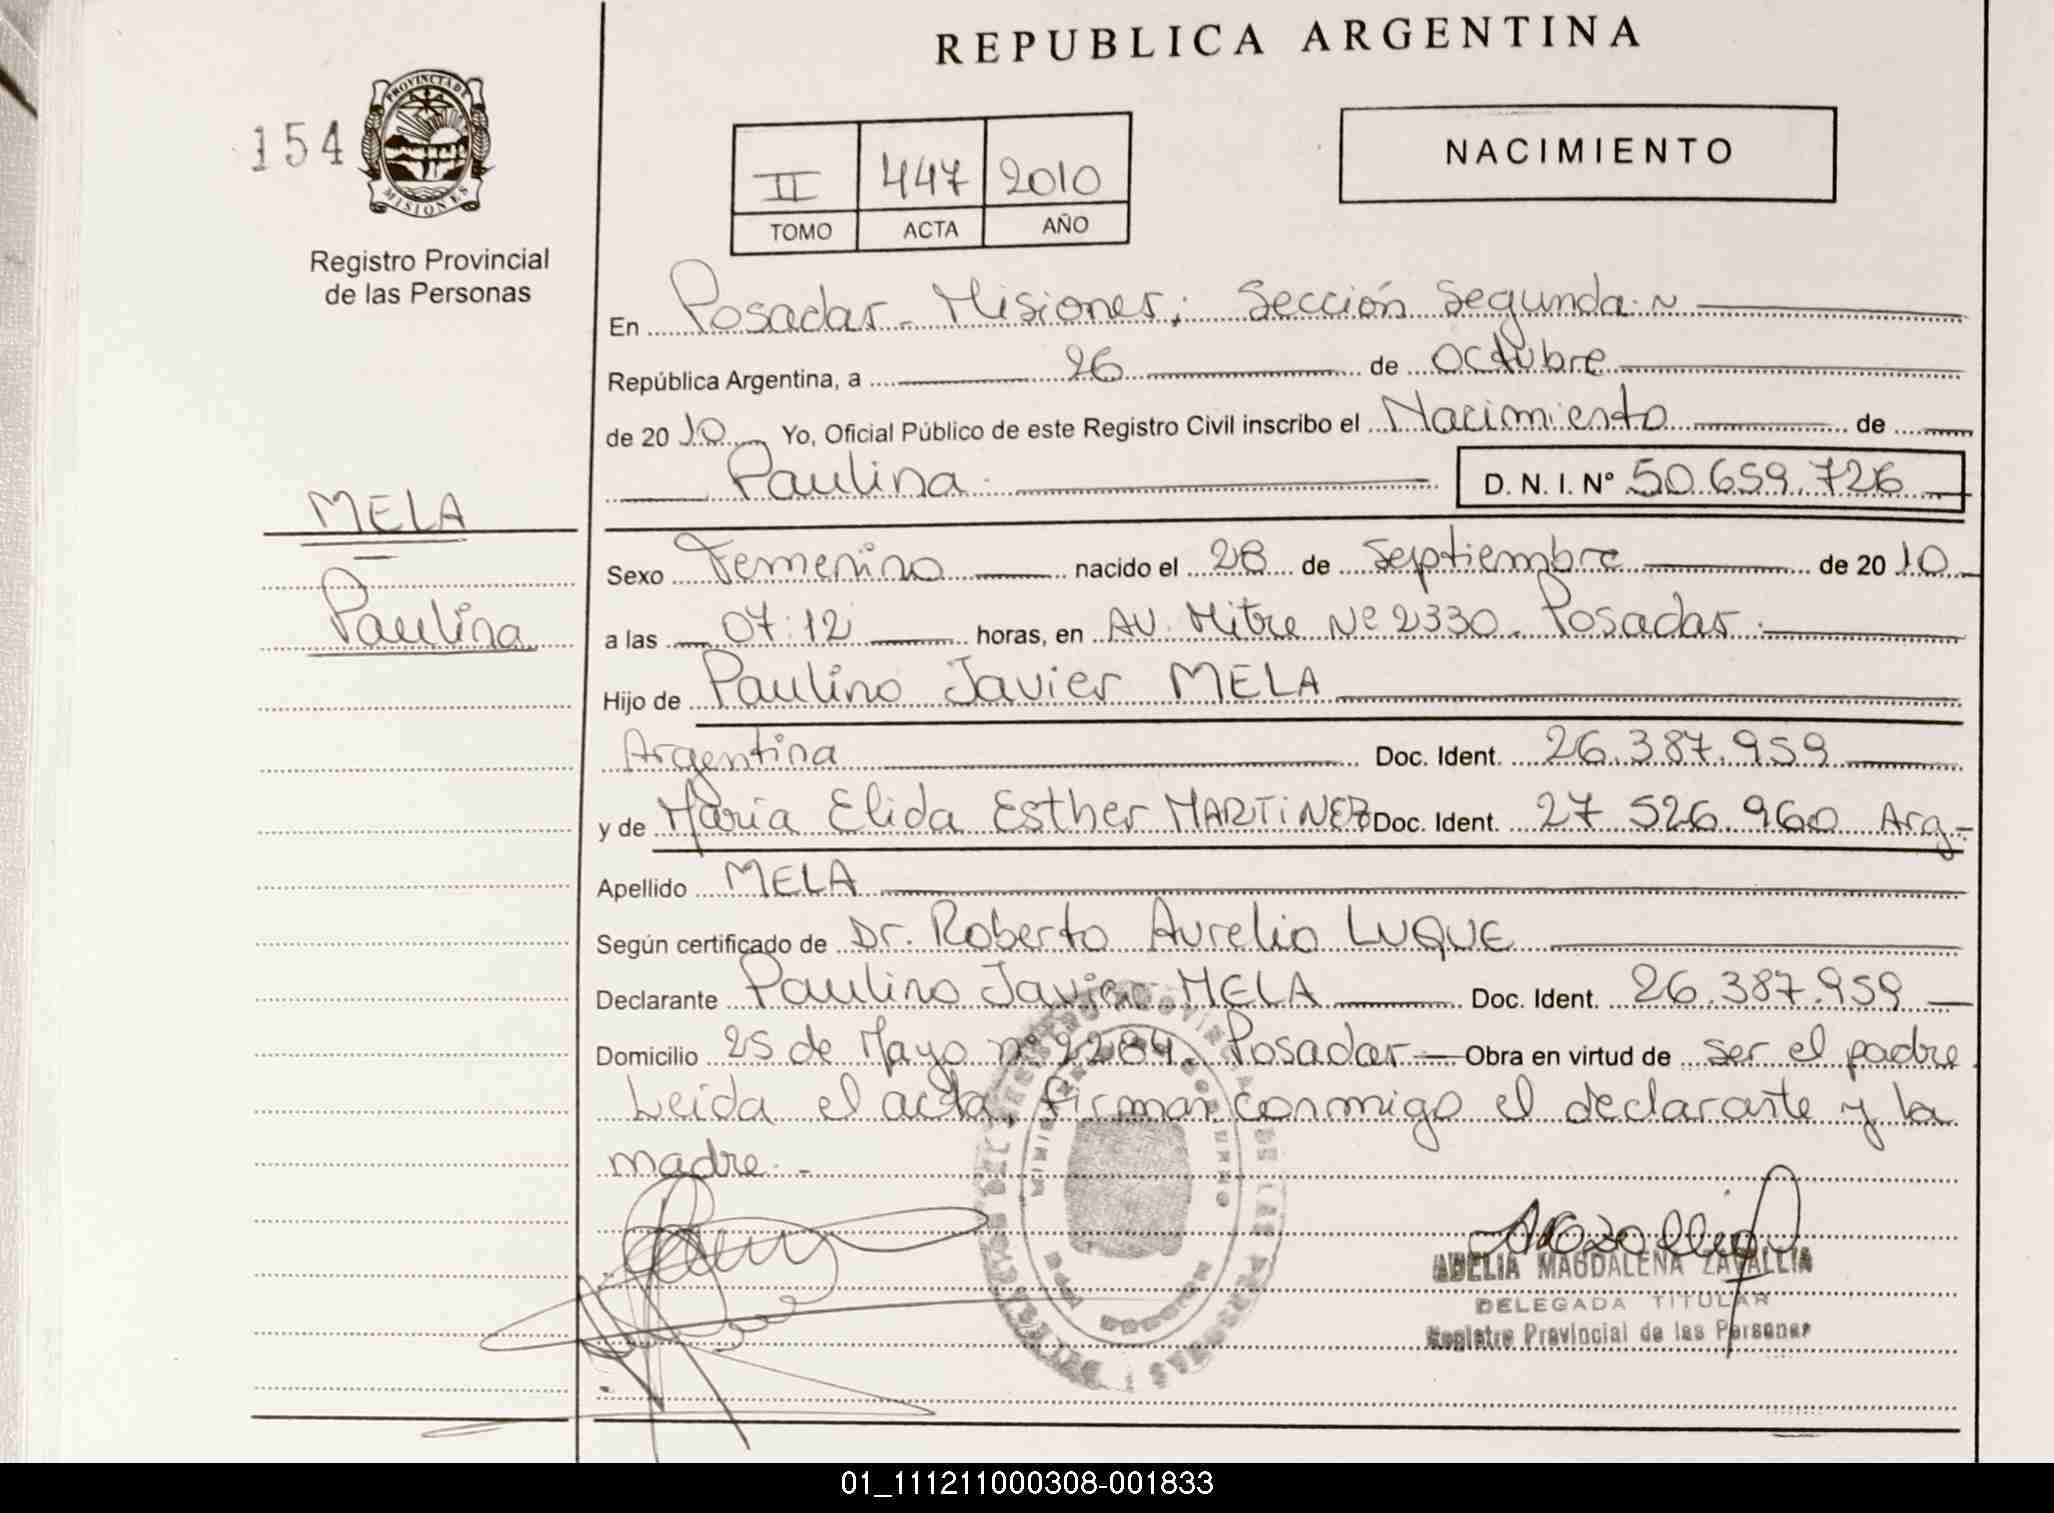 REPUBLICA ARGENTINA
154
PROVINCIA DE
MISIONES
Registro Provincial
de las Personas
II 447 2010
TOMO ACTA AÑO
NACIMIENTO
En Posadas - Misiones; Sección Segunda.~
República Argentina, a 26 de octubre
de 20 10 Yo, Oficial Público de este Registro Civil inscribo el Nacimiento de
Paulina. D. N. I. Nº 50.659.726
MELA
Paulina
Sexo Femenino nacido el 28 de septiembre de 20 10
a las 07:12 horas, en AV. Mitre Nº 2330. Posadas.
Hijo de Paulino Javier MELA
Argentina Doc. Ident. 26.387.959
y de María Elida Esther MARTiNEZ Doc. Ident. 27 526.960 Arg-
Apellido MELA
Según certificado de Dr. Roberto Aurelio LUQUE
Declarante Paulino Javier MELA Doc. Ident. 26.387.959
Domicilio 25 de Mayo nº 2284. Posadas Obra en virtud de ser el padre.
Leida el acta, firman conmigo el declarante y la
madre.-
ADELIA MAGDALENA ZAVALLIA
DELEGADA TITULAR
Registro Provincial de las Personas
01_111211000308-001833